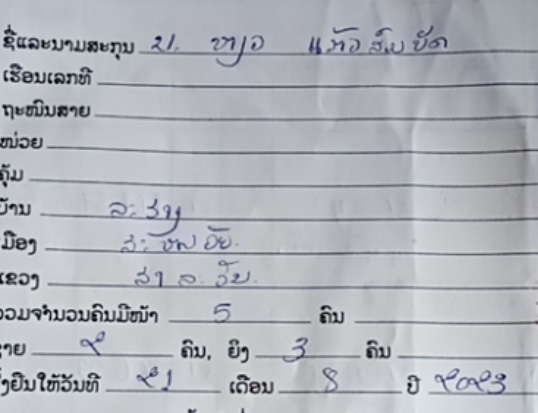 ຊື່ແລະນາມສະກຸນ ນ. ຫຽວ ແກ້ວ ສົມບັດ
ເຮືອນເລກທີ
ຖະໜົນສາຍ
ໜ່ວຍ
ຄຸ້ມ
ບ້ານ
ເມືອງ
ແຂວງ ສາລະວັນ
ລວມຈຳນວນຄົນມີໜ້າ 5 ຄົນ
ຊາຍ ໒ ຄົນ, ຍິງ 3 ຄົນ
ຢືນໃຫ້ວັນທີ ໒1 ເດືອນ 8 ປີ ໒໐໒3